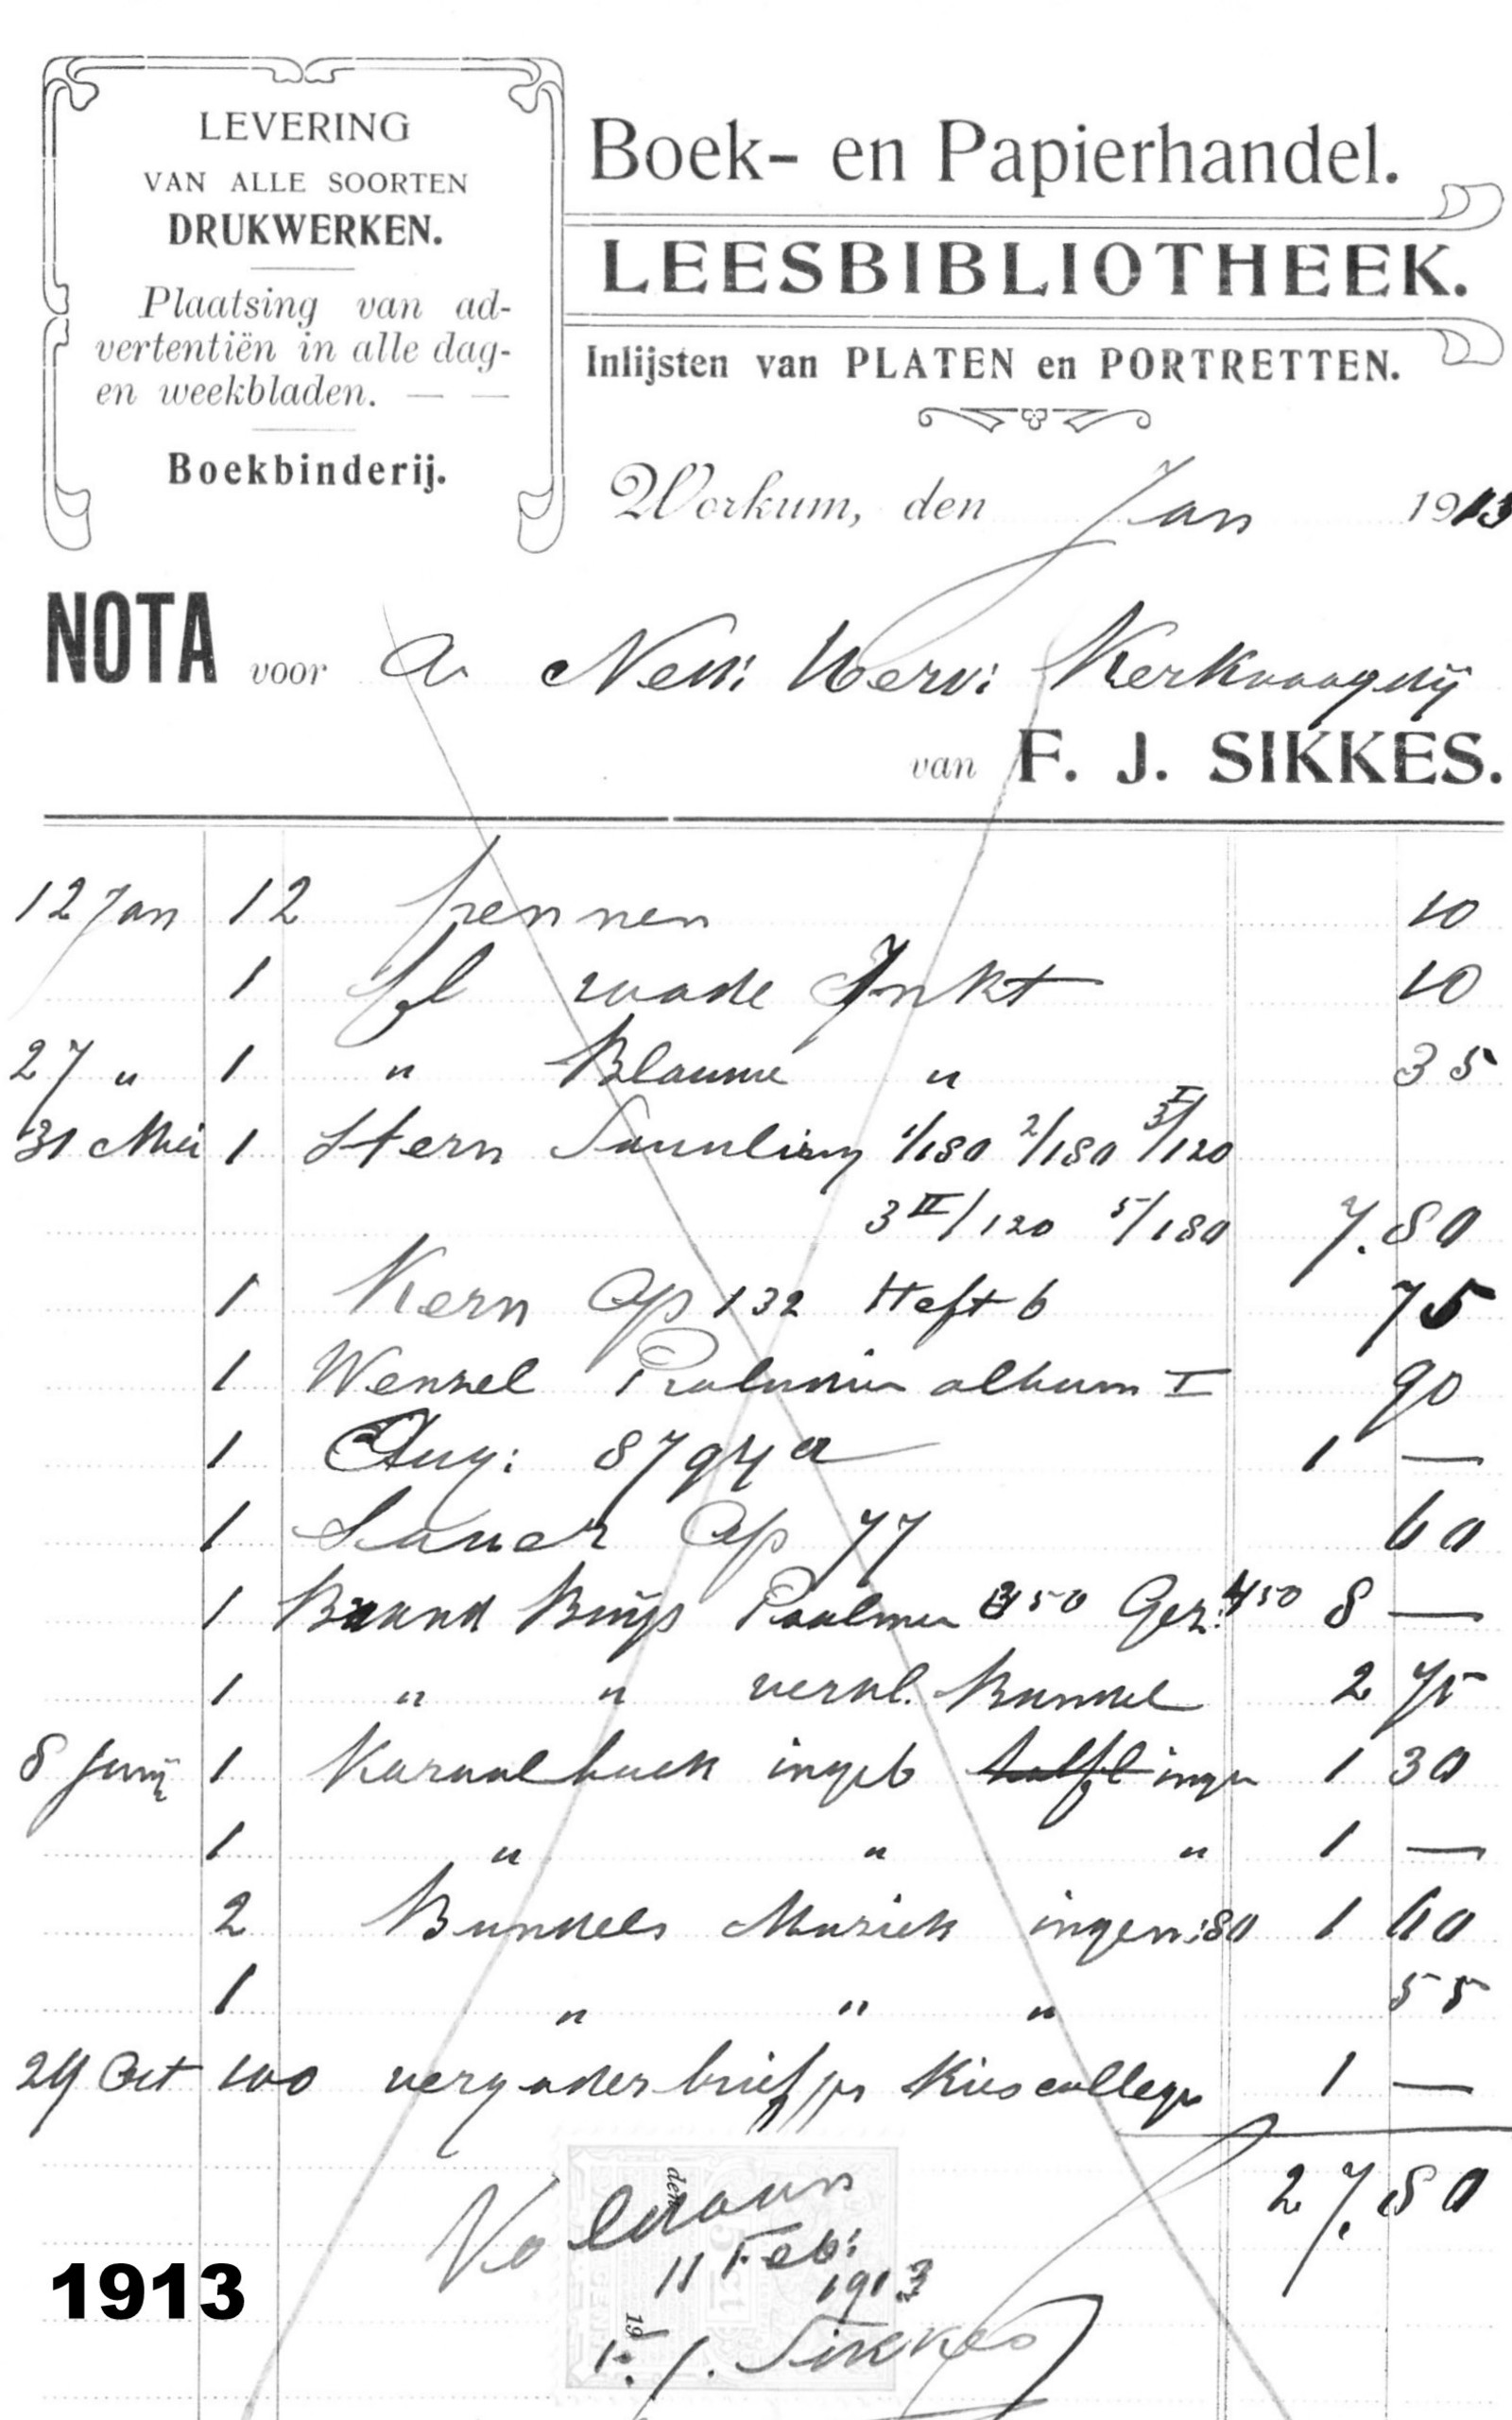 LEVERING
VAN ALLE SOORTEN
DRUKWERKEN.
Plaatsing van ad-
vertentiën in alle dag-
en weekbladen. — —
Boekbinderij.
Boek- en Papierhandel.
LEESBIBLIOTHEEK.
Inlijsten van PLATEN en PORTRETTEN.
Workum, den Jan 1913
NOTA voor de Ned: Herv: Kerkvoogdij
van F. J. SIKKES.
12 Jan 12 pennen 10
1 fl roode Inkt 10
27 " 1 " Blauwe " 35
31 Mei 1 Stern 1/180 2/180 3I/120
3II/120 5/180 7.80
1 Kern Op 132 Heft 6 75
1 Wenzel album I 90
1 Aug: 8794a 1 —
1 Op 77 60
1 Brand Buijs Psalmen 350 Gez: 450 8 —
1 " " verkl. Bundel 2 75
8 Junij 1 Koraalboek ingeb 1 30
1 " " " 1 —
2 Bundels Muziek ingen: 80 1 60
1 " " " 55
29 Oct 100 vergaderbriefjes Kiescollege 1 —
27.80
Voldaan
den
11 Feb:
1913
19
F. J. Sikkes
1913